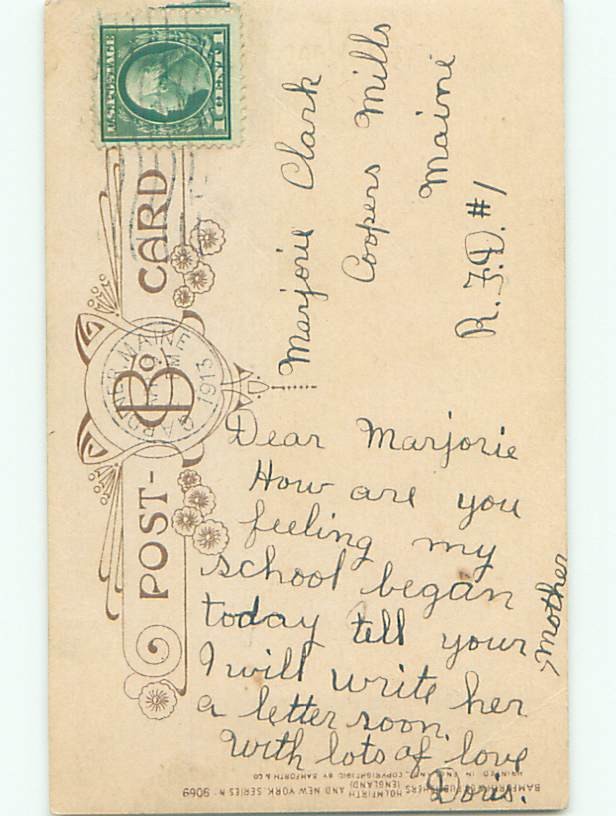 U.S. POSTAGE
1 CENT 1
POST-CARD
B Co.
GARDINER MAINE
PM
1913
Marjorie Clark
Coopers Mills
Maine
R.F.D. #1
Dear Marjorie
How are you
feeling my
school began
today tell your mother
I will write her
a letter soon.
With lots of love
Doris.
BAMFORTH & CO. PUBLISHERS HOLMFIRTH (ENGLAND) AND NEW YORK SERIES No. 9069
PRINTED IN ENGLAND. COPYRIGHT BY BAMFORTH & CO